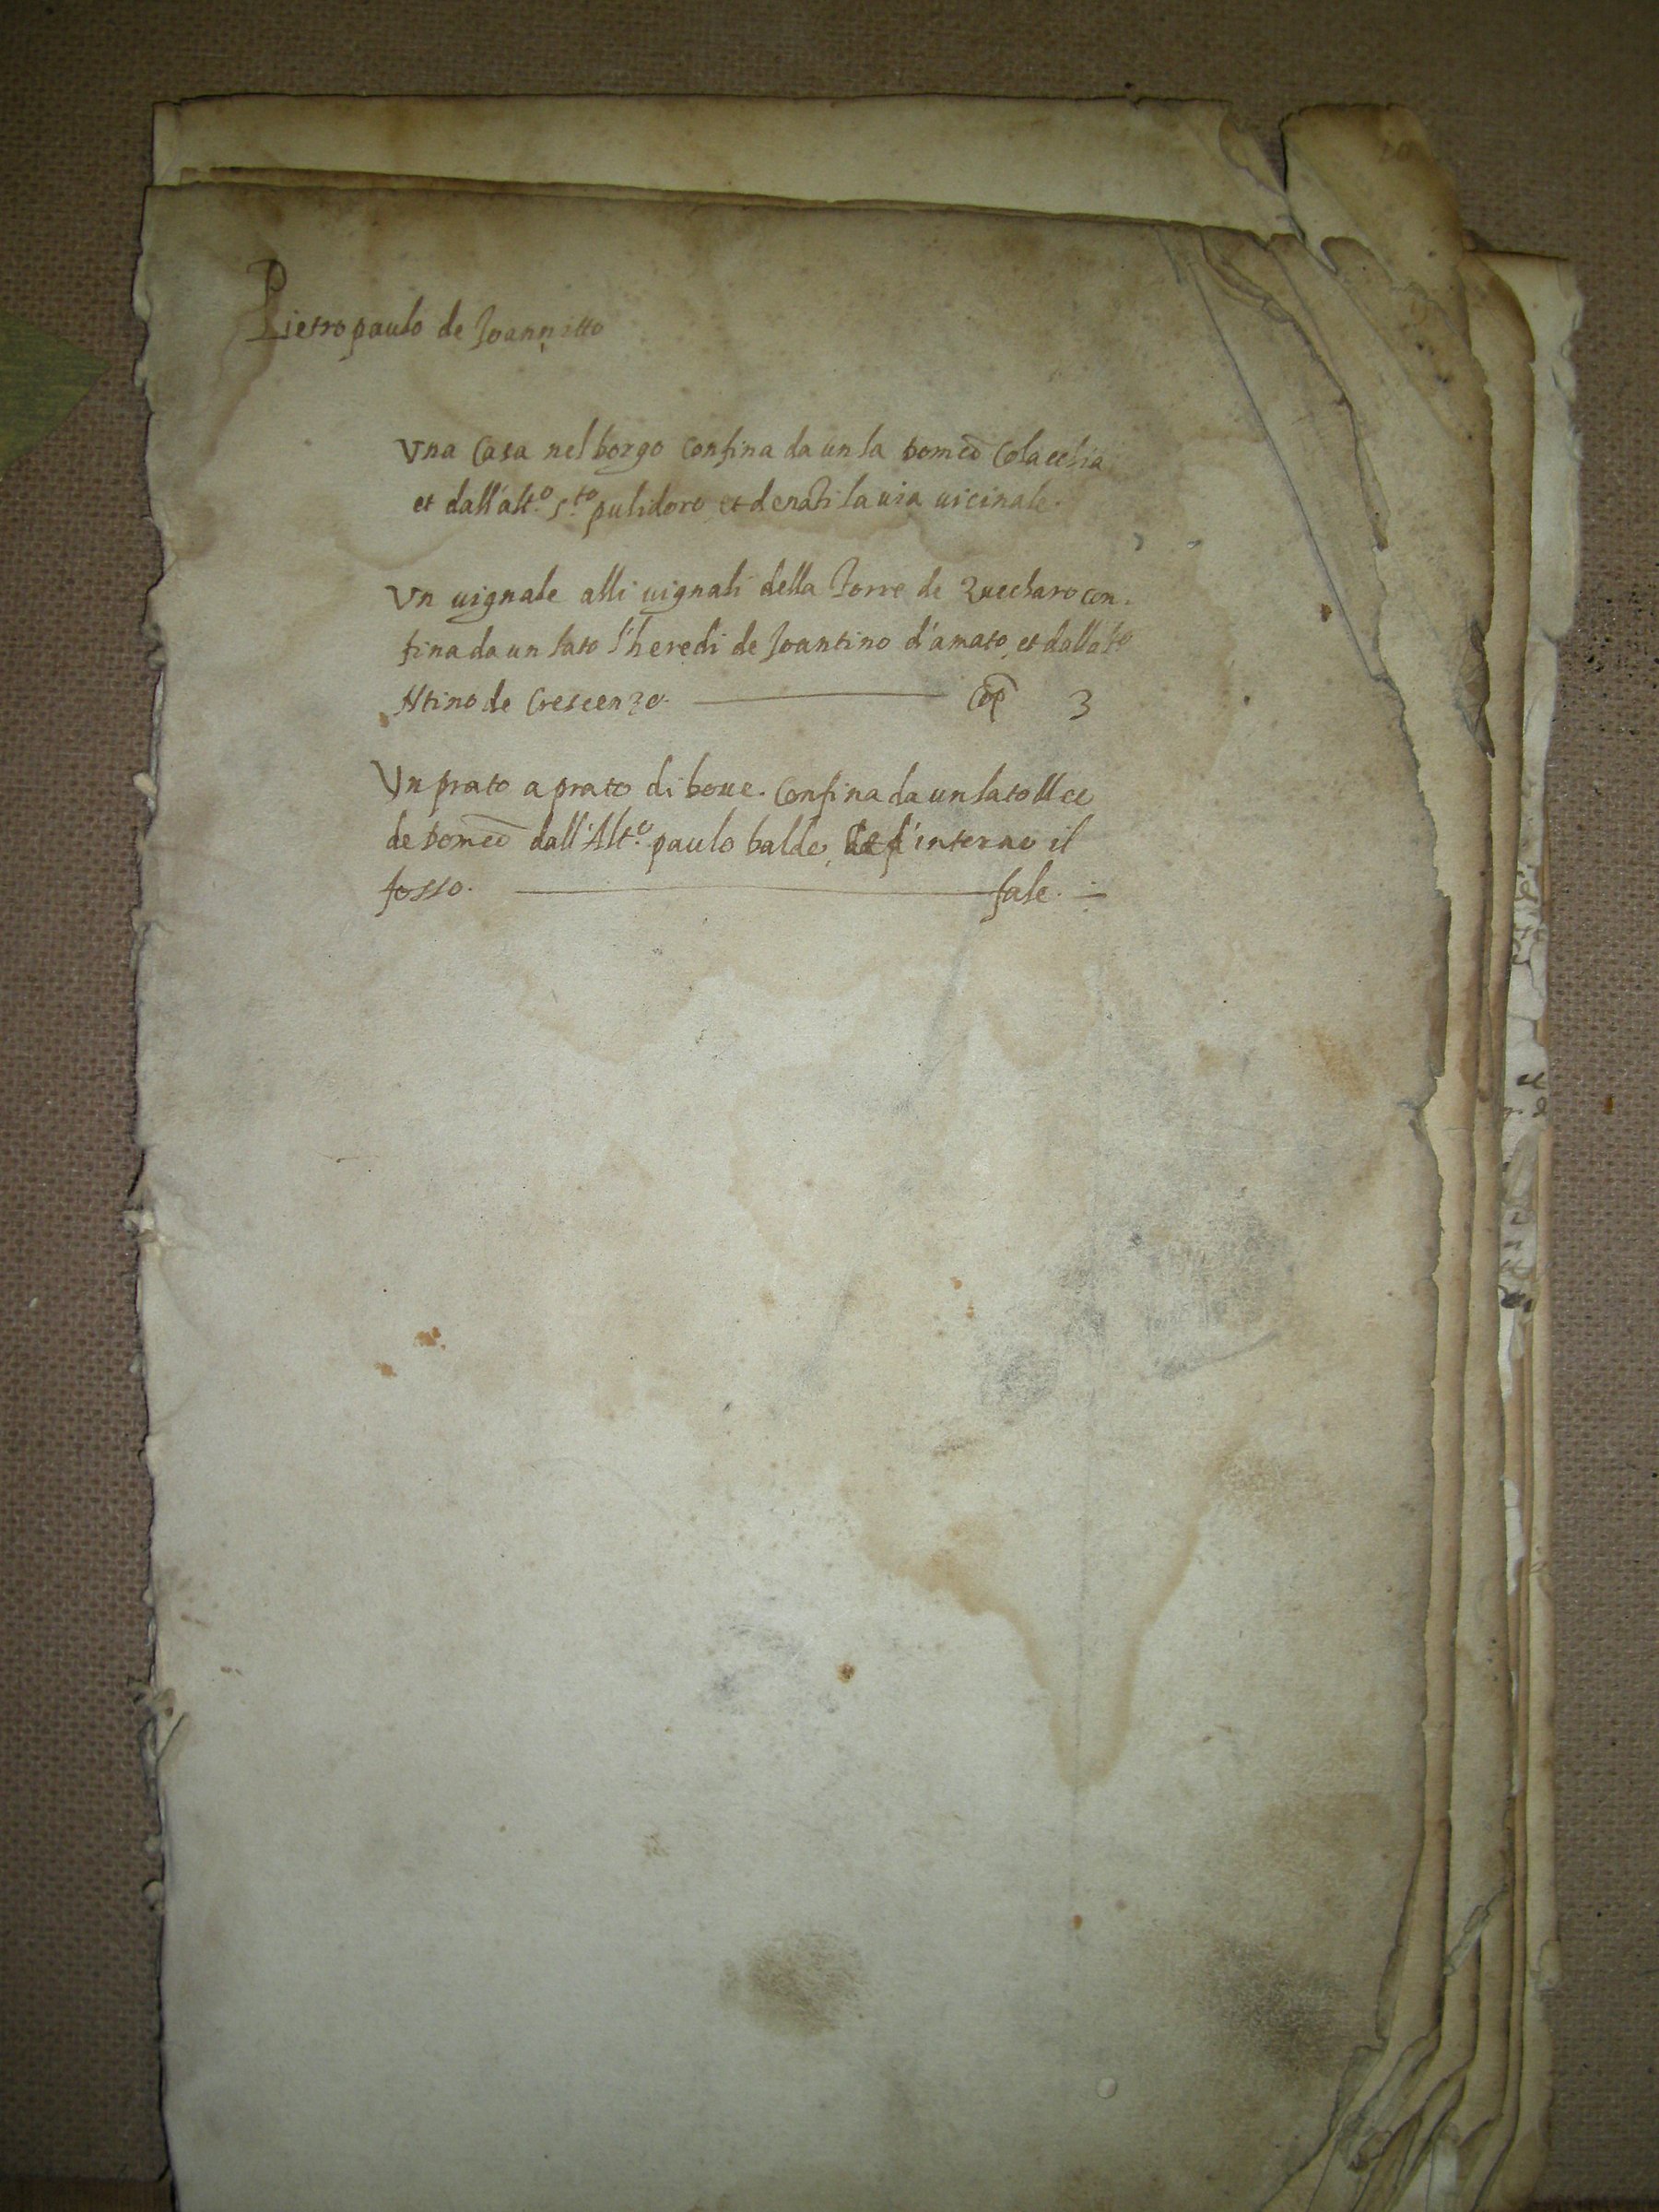 Pietropaulo de Joannitto
Una Casa nel borgo Confina da un la domco Colacelia
et dall'alto sto pulidoro et denati la via uicinale.
Un uignale alli uignali della Torre de Zuccharo con
fina da un lato l'heredi de Joantino d'amato, et dallalto
Ntino de Crescenzo. Cop 3
Un prato a prato di boue. Confina da un lato
de domco dall'Alto paulo baldo, d'interno il
fosso. fale.